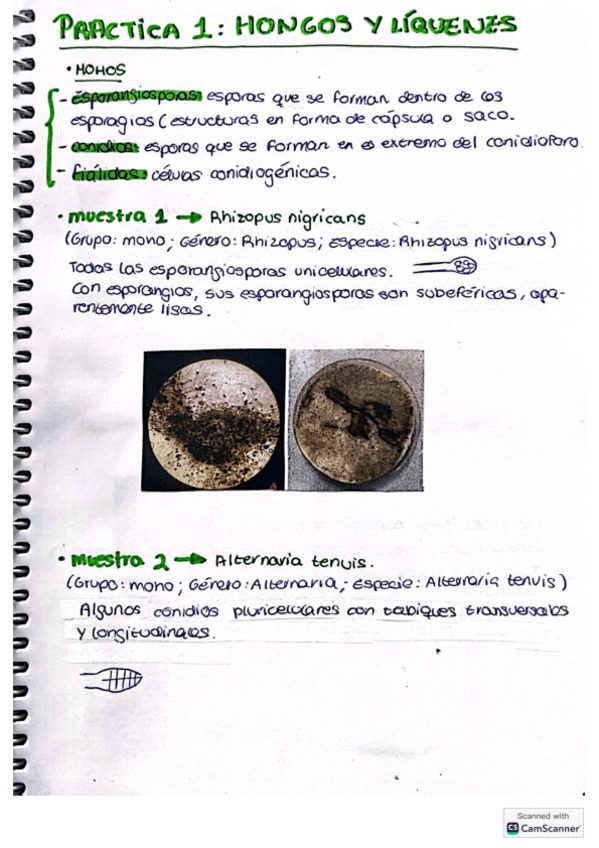 PRACTICA 1: HONGOS Y LÍQUENES
• MOHOS
- Esporangiosporas: esporas que se forman dentro de los
esporagios (estructuras en forma de cápsula o saco.
- conidios: esporas que se forman en el extremo del conidioforo.
- fiálidas: células conidiogénicas.
• muestra 1 → Rhizopus nigricans
(Grupo: moho; Género: Rhizopus; Especie: Rhizopus nigricans)
Todas las esporangiosporas unicelulares.
Con esporangios, sus esporangiosporas son subeféricas, apa-
rentemente lisas.
• muestra 2 → Alternaria tenuis.
(Grupo: moho; Género: Alternaria; Especie: Alternaria tenuis)
Algunos conidios pluricelulares con tabiques transversales
y longitudinales.
Scanned with
CS CamScanner